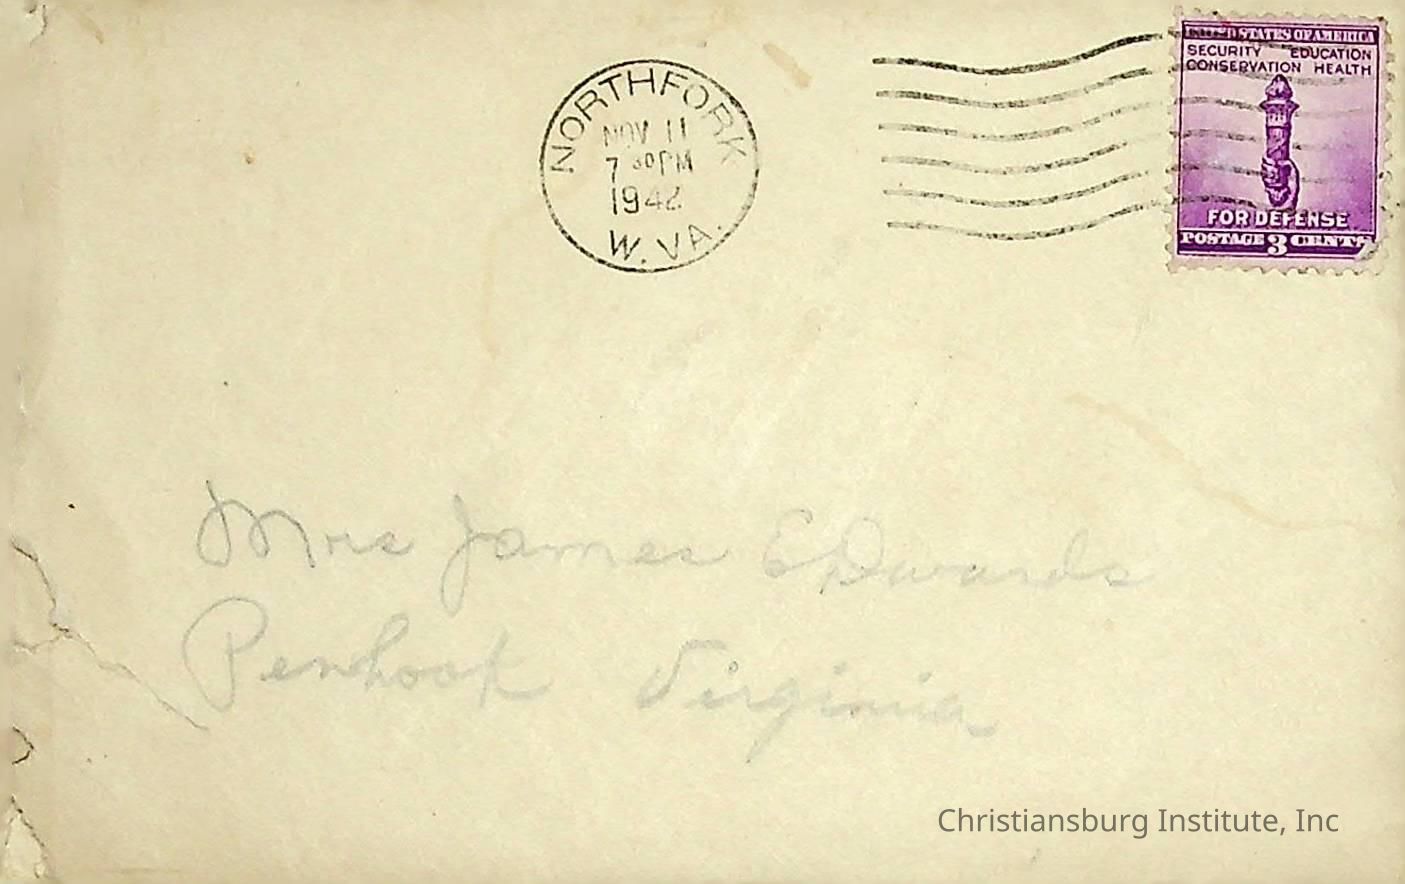 NORTHFORK
NOV 11
7 30 PM
1942
W. VA.
UNITED STATES OF AMERICA
SECURITY EDUCATION
CONSERVATION HEALTH
FOR DEFENSE
POSTAGE 3 CENTS
Mrs James EDwards
Penhook Virginia
Christiansburg Institute, Inc